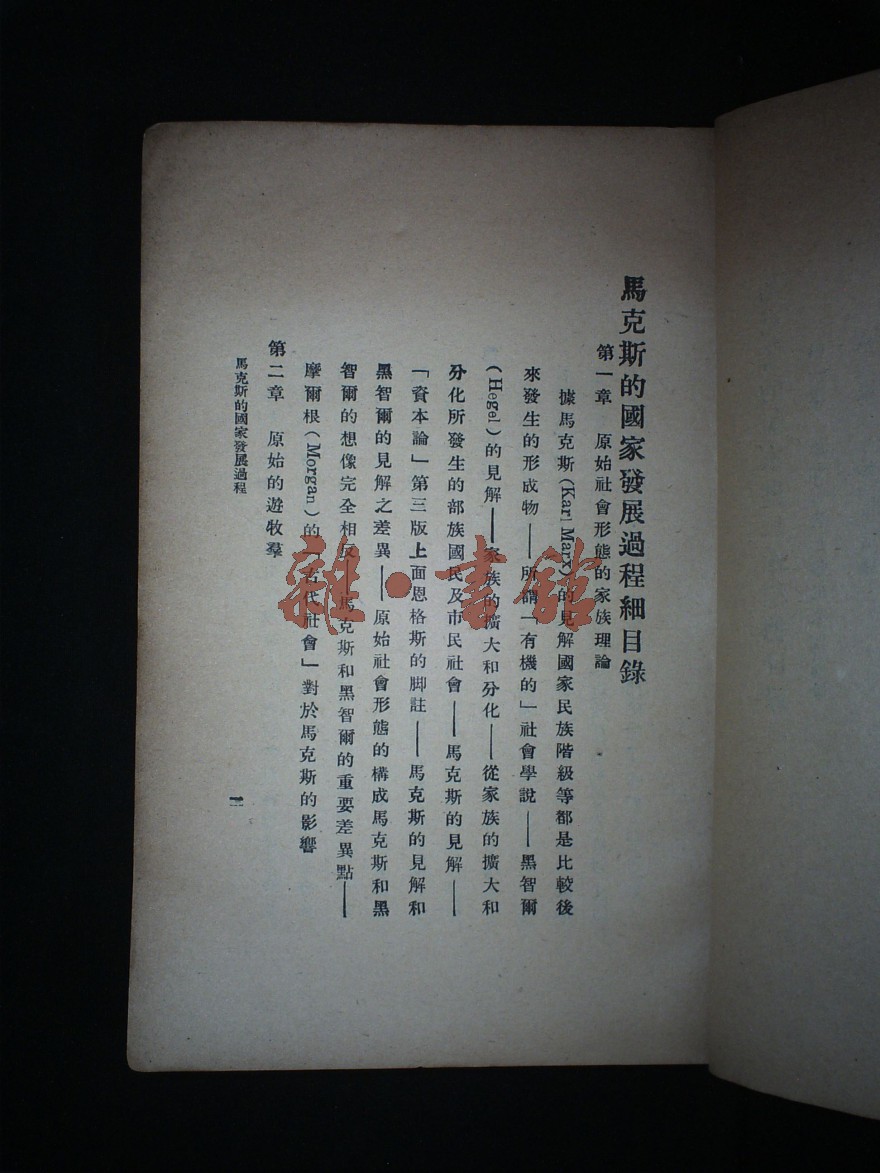 馬克斯的國家發展過程細目錄
第一章 原始社會形態的家族理論
據馬克斯(Karl Marx)的見解國家民族階級等都是比較後
來發生的形成物——所謂「有機的」社會學說——黑智爾
(Hegel)的見解——家族的擴大和分化——從家族的擴大和
分化所發生的部族國民及市民社會——馬克斯的見解——
「資本論」第三版上面恩格斯的脚註——馬克斯的見解和
黑智爾的見解之差異——原始社會形態的構成馬克斯和黑
智爾的想像完全相反——馬克斯和黑智爾的重要差異點——
摩爾根(Morgan)的「古代社會」對於馬克斯的影響
第二章 原始的遊牧羣
馬克斯的國家發展過程
雜·書館